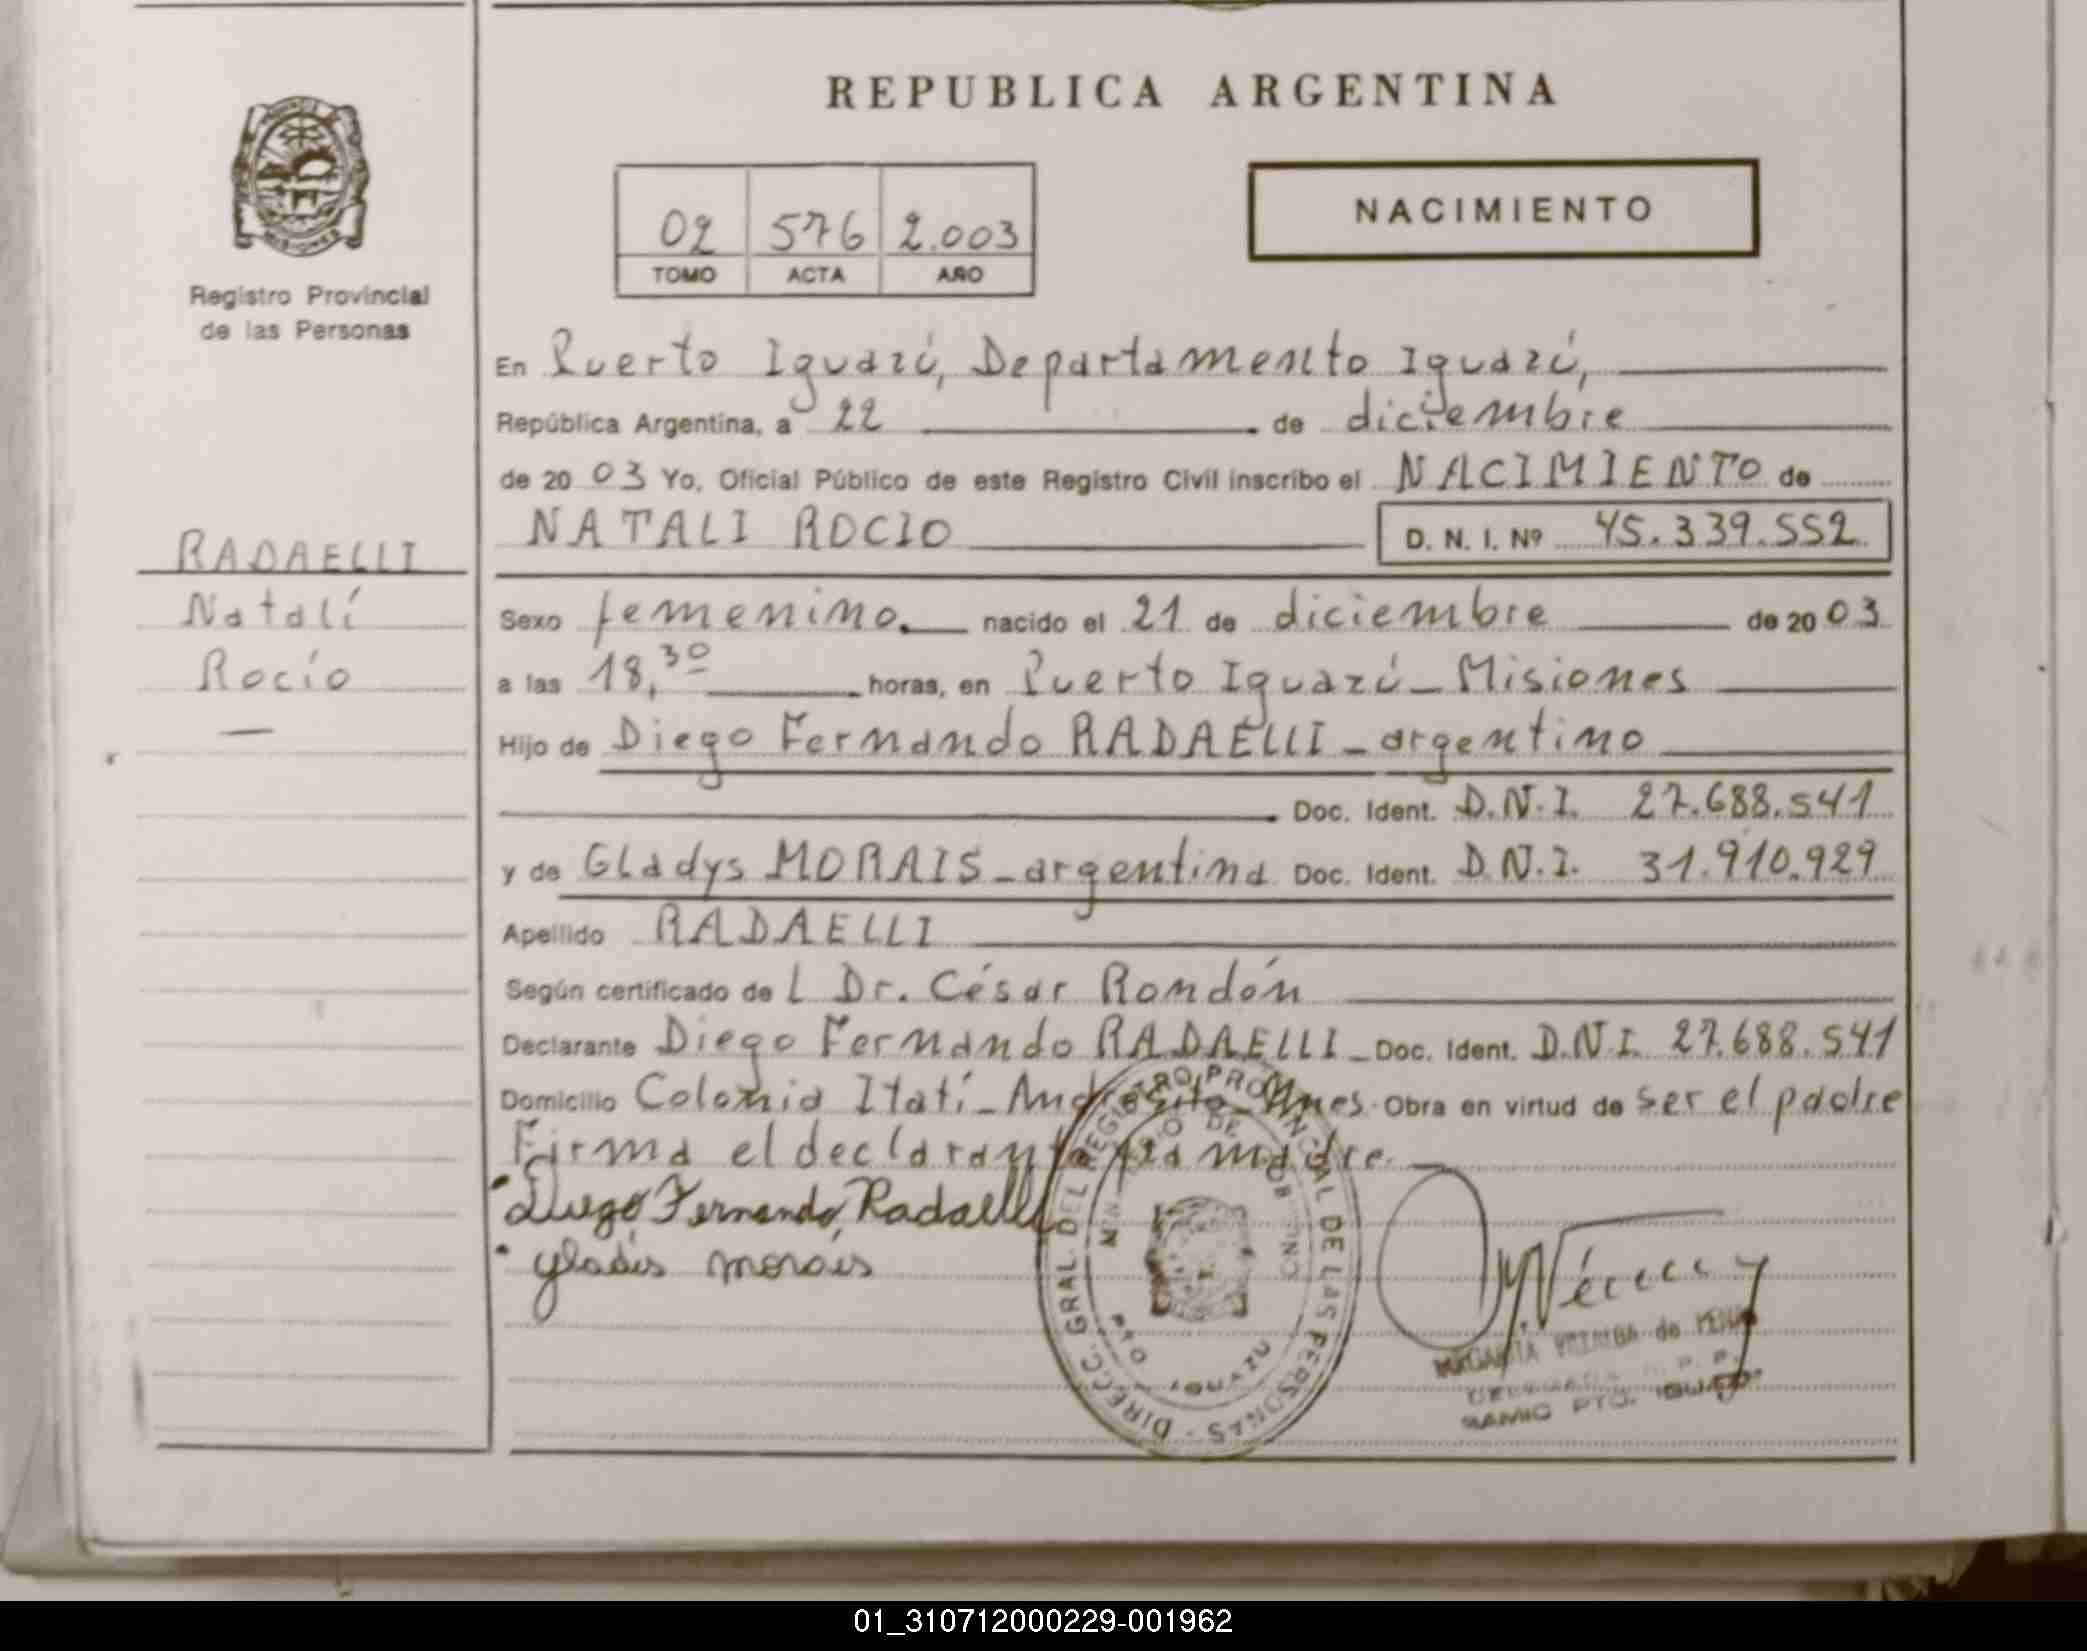 REPUBLICA ARGENTINA
02 576 2.003
TOMO ACTA AÑO
NACIMIENTO
Registro Provincial
de las Personas
RADAELLI
Natalí
Rocío
En Puerto Iguazú, Departamento Iguazú,
República Argentina, a 22 de diciembre
de 20 03 Yo, Oficial Público de este Registro Civil inscribo el NACIMIENTO de
NATALI ROCIO D. N. I. Nº 45.339.552
Sexo femenino. nacido el 21 de diciembre de 20 03
a las 18,30 horas, en Puerto Iguazú - Misiones
Hijo de Diego Fernando RADAELLI - argentino
Doc. Ident. D.N.I. 27.688.541
y de Gladys MORAIS - argentina Doc. Ident. D.N.I. 31.910.929
Apellido RADAELLI
Según certificado de l Dr. César Rondón
Declarante Diego Fernando RADAELLI - Doc. Ident. D.N.I. 27.688.541
Domicilio Colonia Itatí - Andresito - Mnes Obra en virtud de ser el padre
Firma el declarante y la madre.
Diego Fernando Radaelli
gladis morais
DIRECC. GRAL. DEL REGISTRO PROVINCIAL DE LAS PERSONAS
PTO. IGUAZU
MARGARITA de
PTO. IGUAZU
01_310712000229-001962